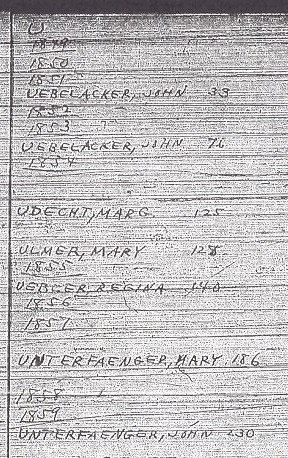 U
1849
1850
1851
UEBELACKER, JOHN 33
1852
1853
UEBELACKER, JOHN 76
1854
UDECHT, MARG. 125
ULMER, MARY 128
1855
UEBCER, REGINA 140
1856
1857
UNTERFAENGER, MARY 186
1858
1859
UNTERFAENGER, JOHN 230